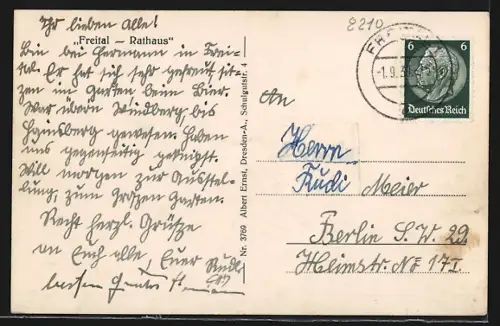 Ihr lieben alle!
„Freital — Rathaus"
Bin bei Hermann in Frei-
tal. Er hat sich sehr gefreut sit-
zen im Garten beim Bier.
War übern Windberg bis
Hainsberg gewesen. Haben
uns gegenseitig geknipst.
Will morgen zur Ausstel-
lung, zum großen Garten.
Recht herzl. Grüße
an Euch alle, Euer Rudi
besten
Nr. 3769 Albert Ernst, Dresden-A., Schulgutstr. 4
8210
-1.9.3
6 6
Deutsches Reich
An
Herrn
Rudi Meier
Berlin S.W. 29.
Heimstr. No 17 I.